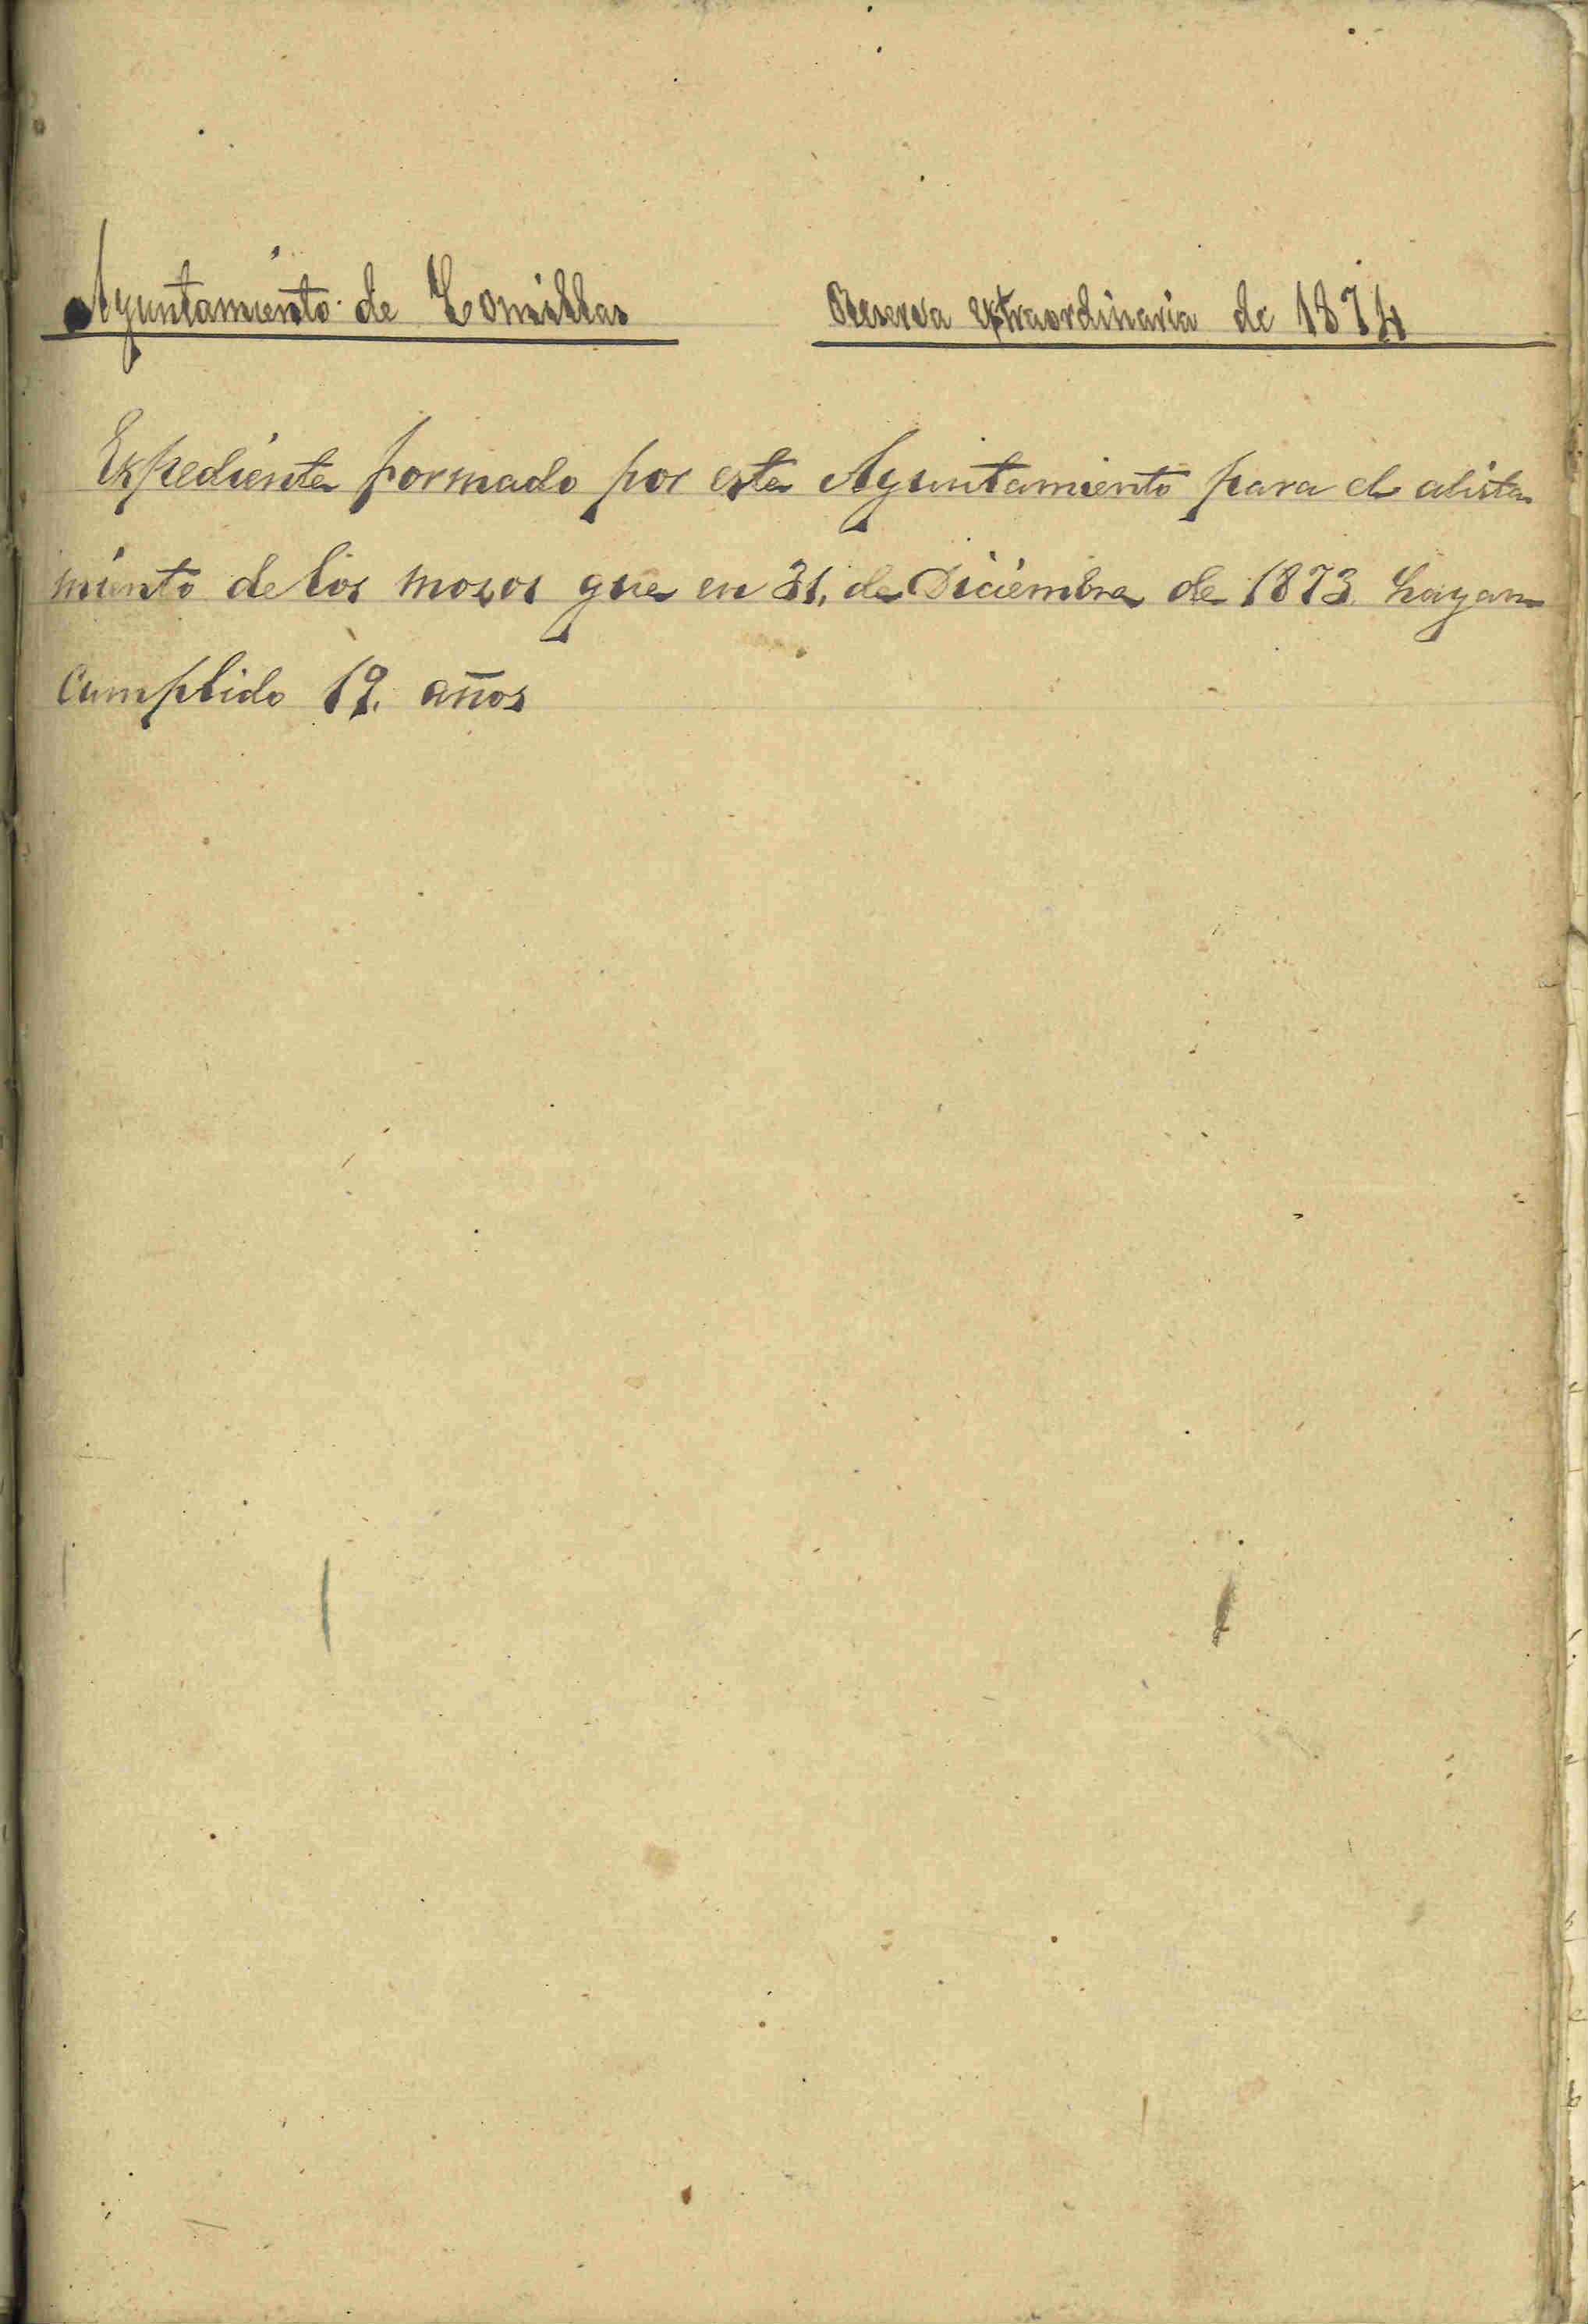 Ayuntamiento de Comillas
Reserva extraordinaria de 1874
Expediente formado por este Ayuntamiento para el alista
miento de los mozos que en 31. de Diciembre de 1873 hayan
Cumplido 19. años